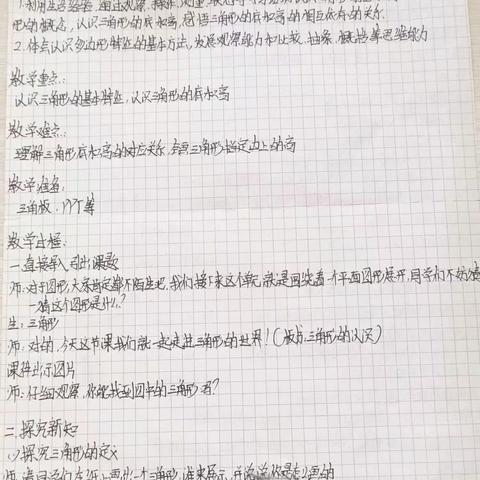 1.利用生活经验,通过观察、操作、测量
形的概念,认识三角形的底和高,感悟三角形的底和高的相互依存的关系.
2.体点认识多边形特征的基本方法,发展观察能力和比较、抽象、概括等思维能力
教学重点:
认识三角形的基本特征,认识三角形的底和高
教学难点:
理解三角形底和高的对应关系,会画三角形指定边上的高
教学准备:
三角板、PPT等
教学过程:
一直接导入,引出课题
师:对于图形,大家肯定都不陌生吧,我们接下来这个单元就是围绕着一个平面图形展开,同学们不妨猜
一猜这个图形是什么?
生:三角形
师:对的,今天这节课我们就一起走进三角形的世界!(板书:三角形的认识)
课件出示图片
师:仔细观察,你能找到图中的三角形吗?
二.探究新知
(1)探究三角形的定义
师:请同学们在纸上画出一个三角形,谁来展示,并说说你是怎么画的